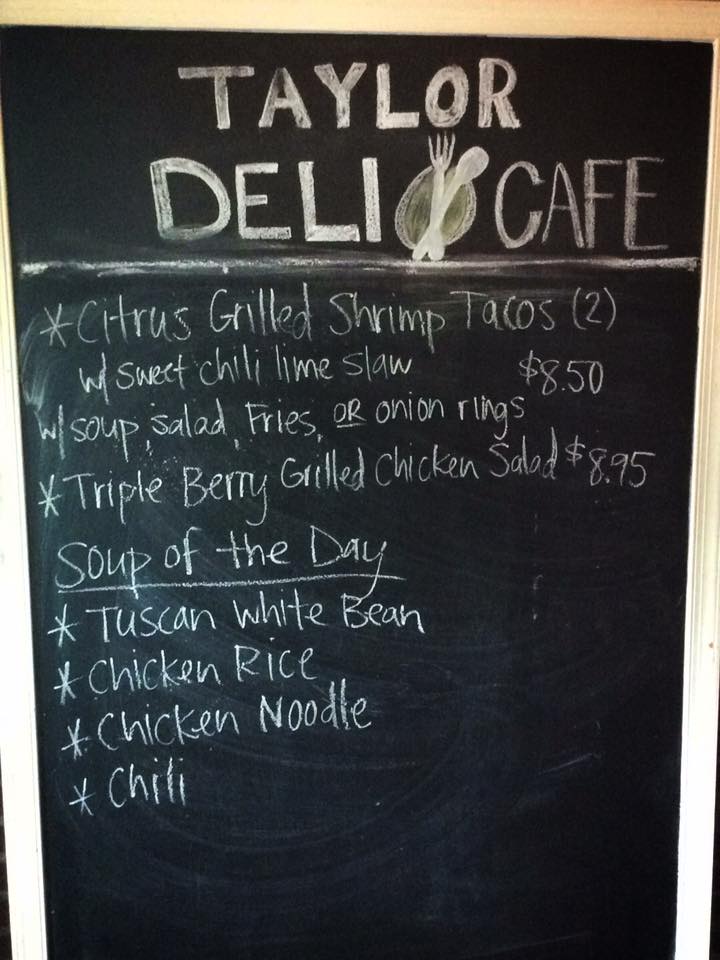 TAYLOR
DELI CAFE
* Citrus Grilled Shrimp Tacos (2)
w/ sweet chili lime slaw $8.50
w/ soup, salad, Fries, OR onion rings
* Triple Berry Grilled Chicken Salad $8.95
Soup of the Day
* Tuscan White Bean
* Chicken Rice
* Chicken Noodle
* Chili